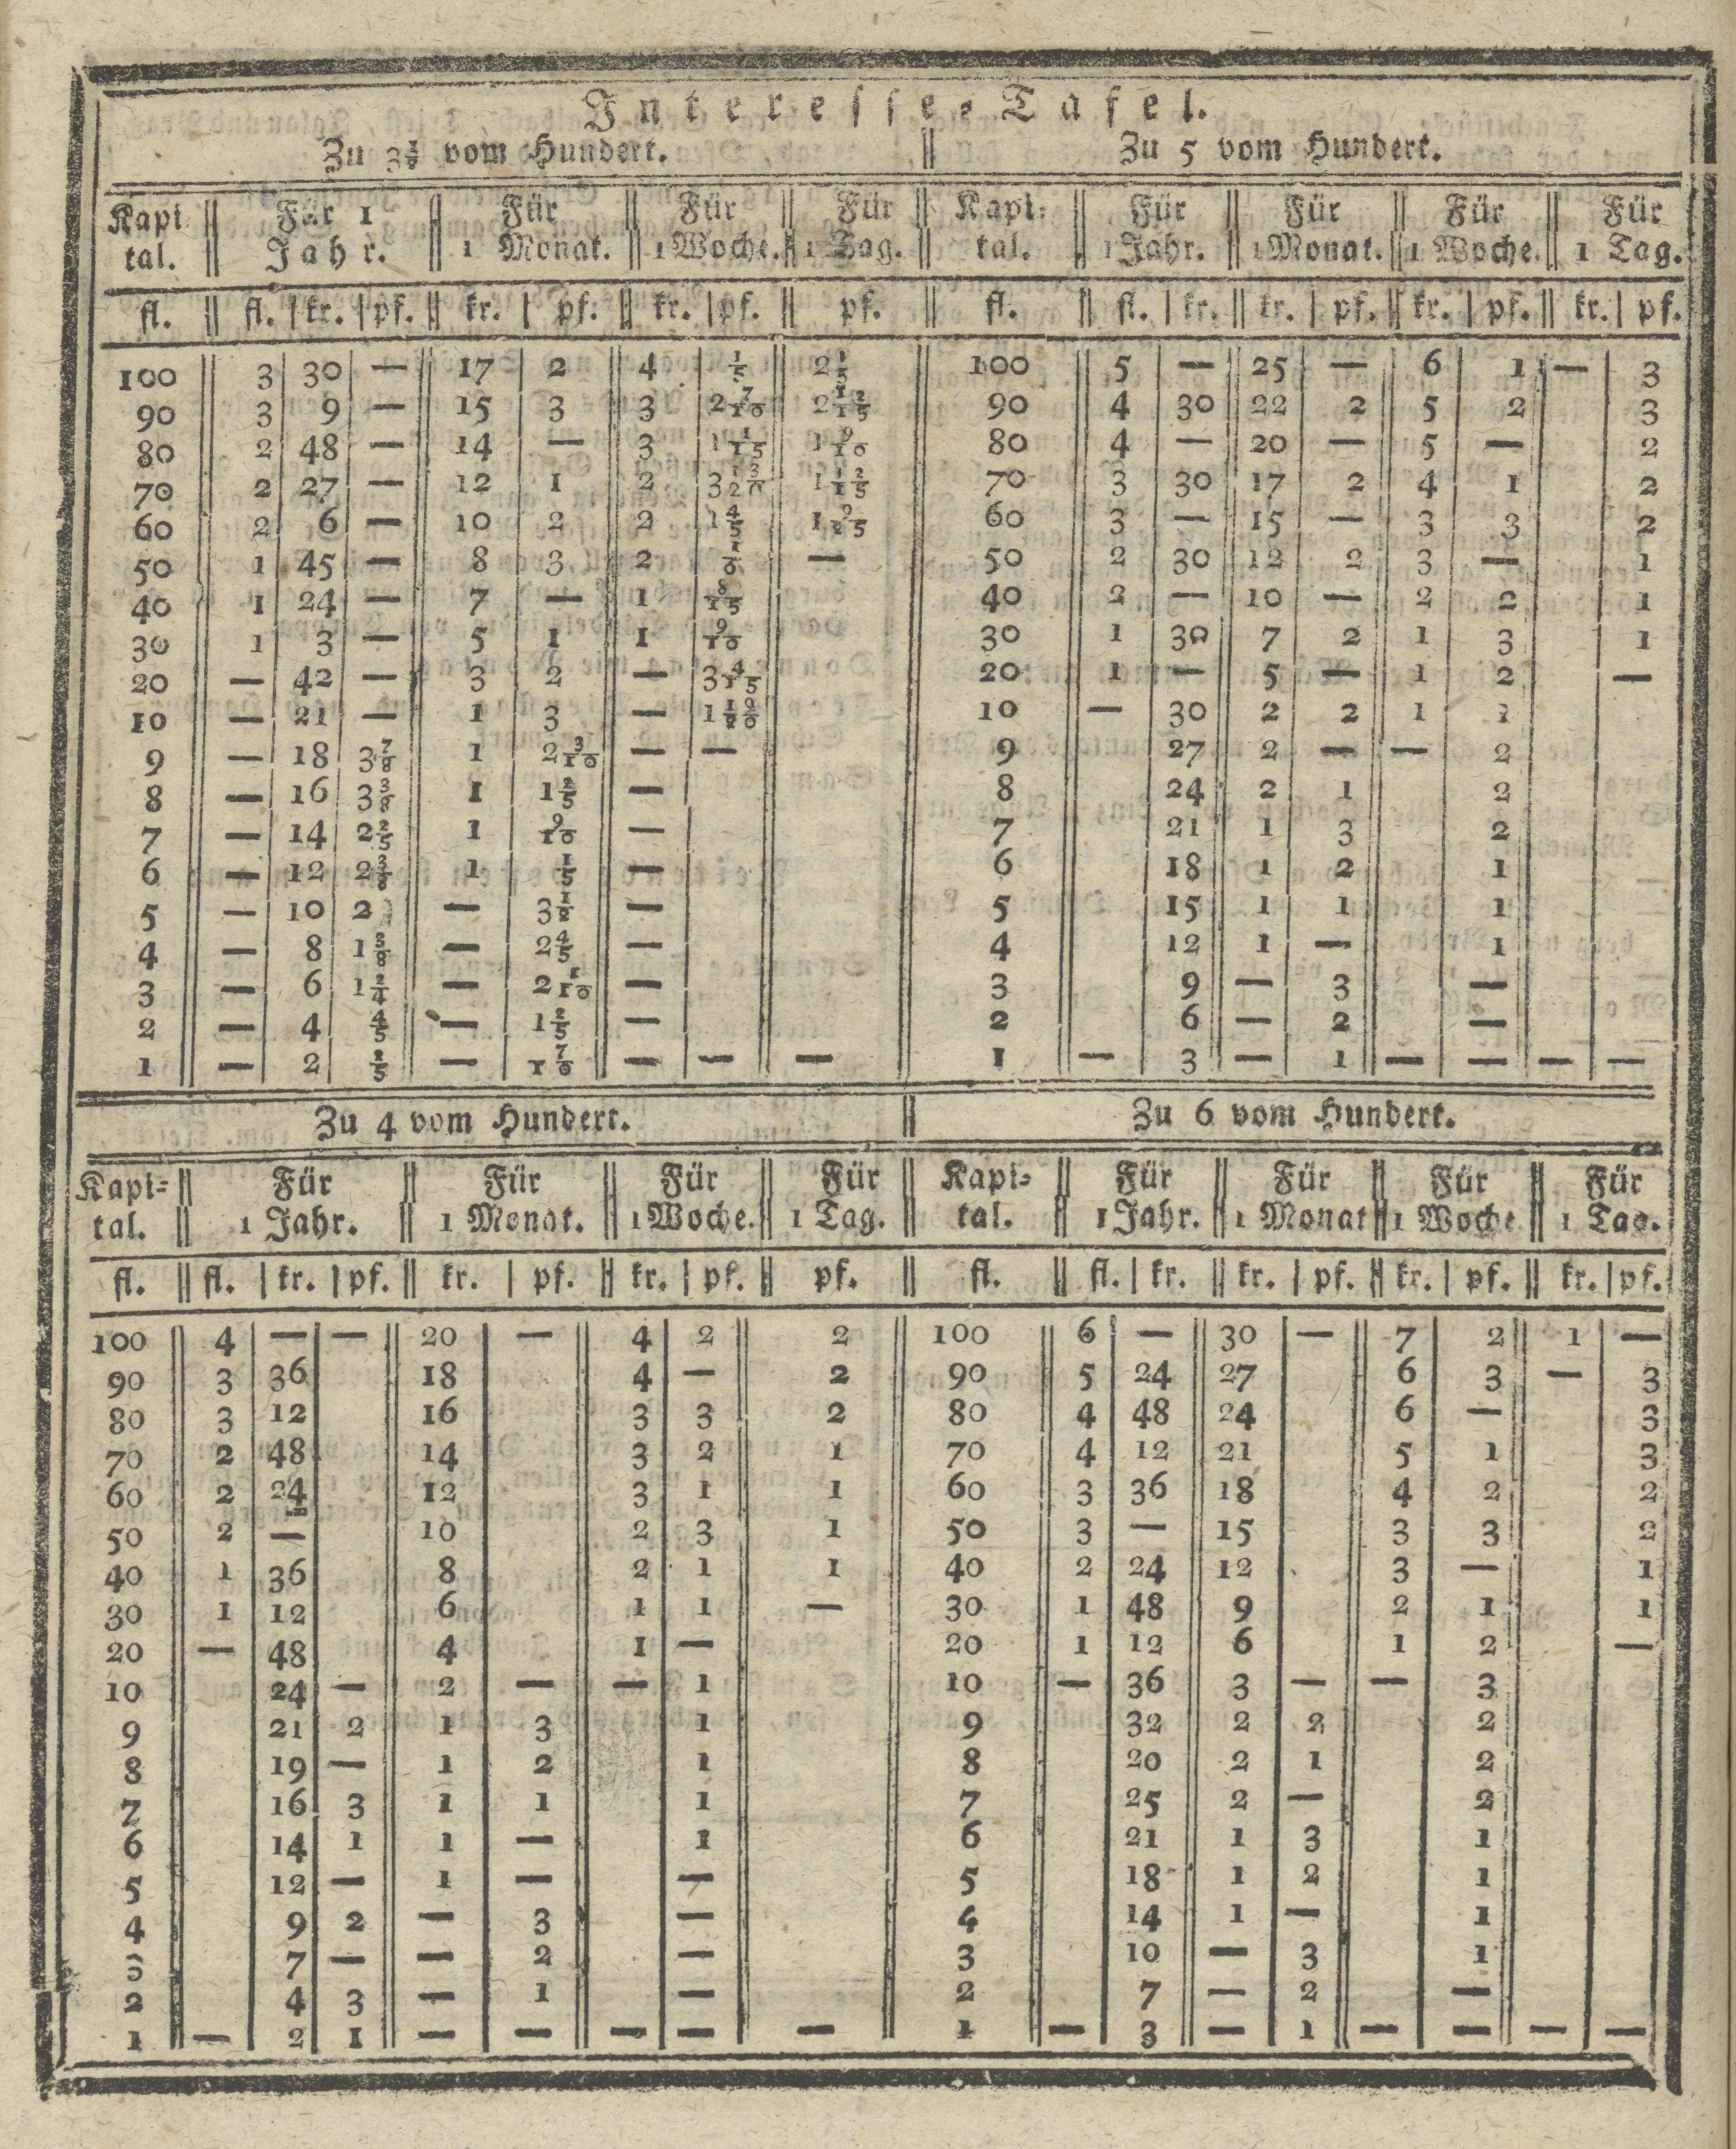 Interesse-Tafel.
Zu 3½ vom Hundert. || Zu 5 vom Hundert.
Kapi || Für 1 || Für || Für || Für || Kapi- || Für || Für || Für || Für
tal. || Jahr. || 1 Monat. || 1 Woche. || 1 Tag. || tal. || 1 Jahr. || 1 Monat. || 1 Woche. || 1 Tag.
fl. || fl. | kr. | pf. || kr. | pf. || kr. | pf. || pf. || fl. || fl. | kr. || kr. | pf. || kr. | pf. || kr. | pf.
100 3 30 — 17 2 4 1/5 2 1/5 100 5 — 25 — 6 1 — 3
90 3 9 — 15 3 3 2 7/10 90 4 30 22 2 5 2 3
80 2 48 — 14 — 3 1 1/15 1 9/10 80 4 — 20 — 5 — 2
70 2 27 — 12 1 2 70 3 30 17 2 4 1 2
60 2 6 — 10 2 2 1 4/5 60 3 — 15 — 3 3 2
50 1 45 — 8 3 2 — 50 2 30 12 2 3 — 1
40 1 24 — 7 — 1 8/15 40 2 — 10 — 2 2 1
30 1 3 — 5 1 1 9/10 30 1 30 7 2 1 3 1
20 — 42 — 3 2 — 3 4/15 20 1 — 5 — 1 2 —
10 — 21 — 1 3 — 10 — 30 2 2 1 1
9 — 18 3 7/8 1 2 3/10 — — 9 27 2 — — 2
8 — 16 3 3/8 1 1 2/5 — 8 24 2 1 2
7 — 14 2 2/5 1 9/10 — 7 21 1 3 2
6 — 12 2 3/8 1 1/5 — 6 18 1 2 1
5 — 10 2 — 3 1/2 — 5 15 1 1 1
4 — 8 1 5/8 — 2 4/5 — 4 12 1 — 1
3 — 6 1 2/4 — 2 1/10 — 3 9 — 3 —
2 — 4 4/5 — 1 2/5 — 2 6 — 2 —
1 — 2 2/5 — 7/10 — — — 1 — 3 — 1 — — — —
Zu 4 vom Hundert. || Zu 6 vom Hundert.
Kapi- || Für || Für || Für || Für || Kapi- || Für || Für || Für || Für
tal. || 1 Jahr. || 1 Monat. || 1 Woche. || 1 Tag. || tal. || 1 Jahr. || 1 Monat || 1 Woche || 1 Tag.
fl. || fl. | kr. | pf. || kr. | pf. || kr. | pf. || pf. || fl. || fl. | kr. || kr. | pf. || kr. | pf. || kr. | pf.
100 4 — — 20 — 4 2 2 100 6 — 30 — 7 2 1 —
90 3 36 18 4 — 2 90 5 24 27 6 3 — 3
80 3 12 16 3 3 2 80 4 48 24 6 — 3
70 2 48 14 3 2 1 70 4 12 21 5 1 3
60 2 24 12 3 1 1 60 3 36 18 4 2 2
50 2 — 10 2 3 1 50 3 — 15 3 3 2
40 1 36 8 2 1 1 40 2 24 12 3 — 1
30 1 12 6 1 1 — 30 1 48 9 2 1 1
20 — 48 4 1 — 20 1 12 6 1 2 —
10 24 — 2 — — 1 10 — 36 3 — — 3
9 21 2 1 3 1 9 32 2 2 2
8 19 — 1 2 1 8 20 2 1 2
7 16 3 1 1 1 7 25 2 — 2
6 14 1 1 — 1 6 21 1 3 1
5 12 — 1 — — 5 18 1 2 1
4 9 2 — 3 — 4 14 1 — 1
3 7 — — 2 — 3 10 — 3 1
2 4 3 — 1 — 2 7 — 2 —
1 — 2 1 — — — — — 1 — 3 — 1 — — — —